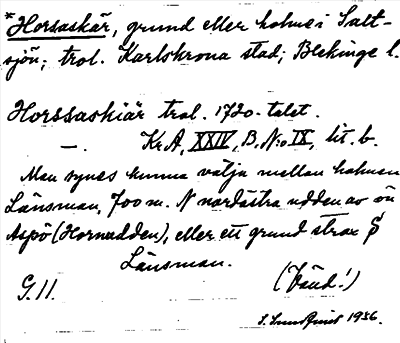 *Horsaskär, grund eller holme i Salt-
sjön; trol. Karlskrona stad; Blekinge l.
Horssaskiär trol. 1720-talet.
—. Kr A, XXIV, B. N:o IX, lit. b.
Man synes kunna välja mellan holmen
Länsman, 700 m. N nordöstra udden av ön
Aspö (Hornudden), eller ett grund strax S
Länsman.
G. 11. (Vänd!)
S. Sundquist 1936.